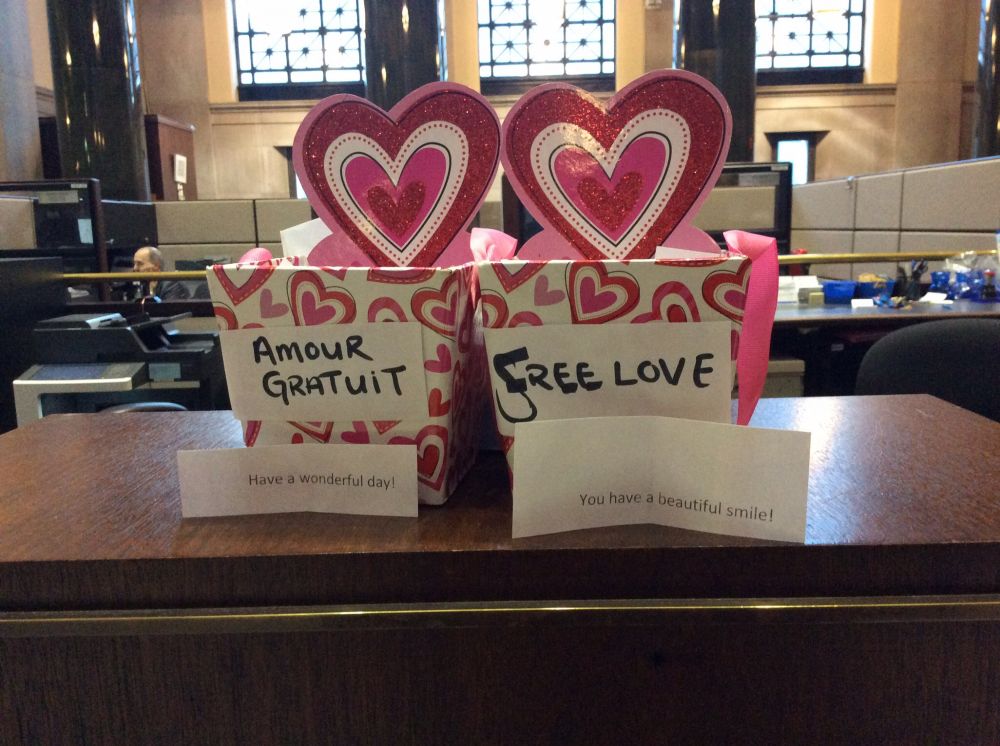 AMOUR
GRATUIT
Have a wonderful day!
FREE LOVE
You have a beautiful smile!